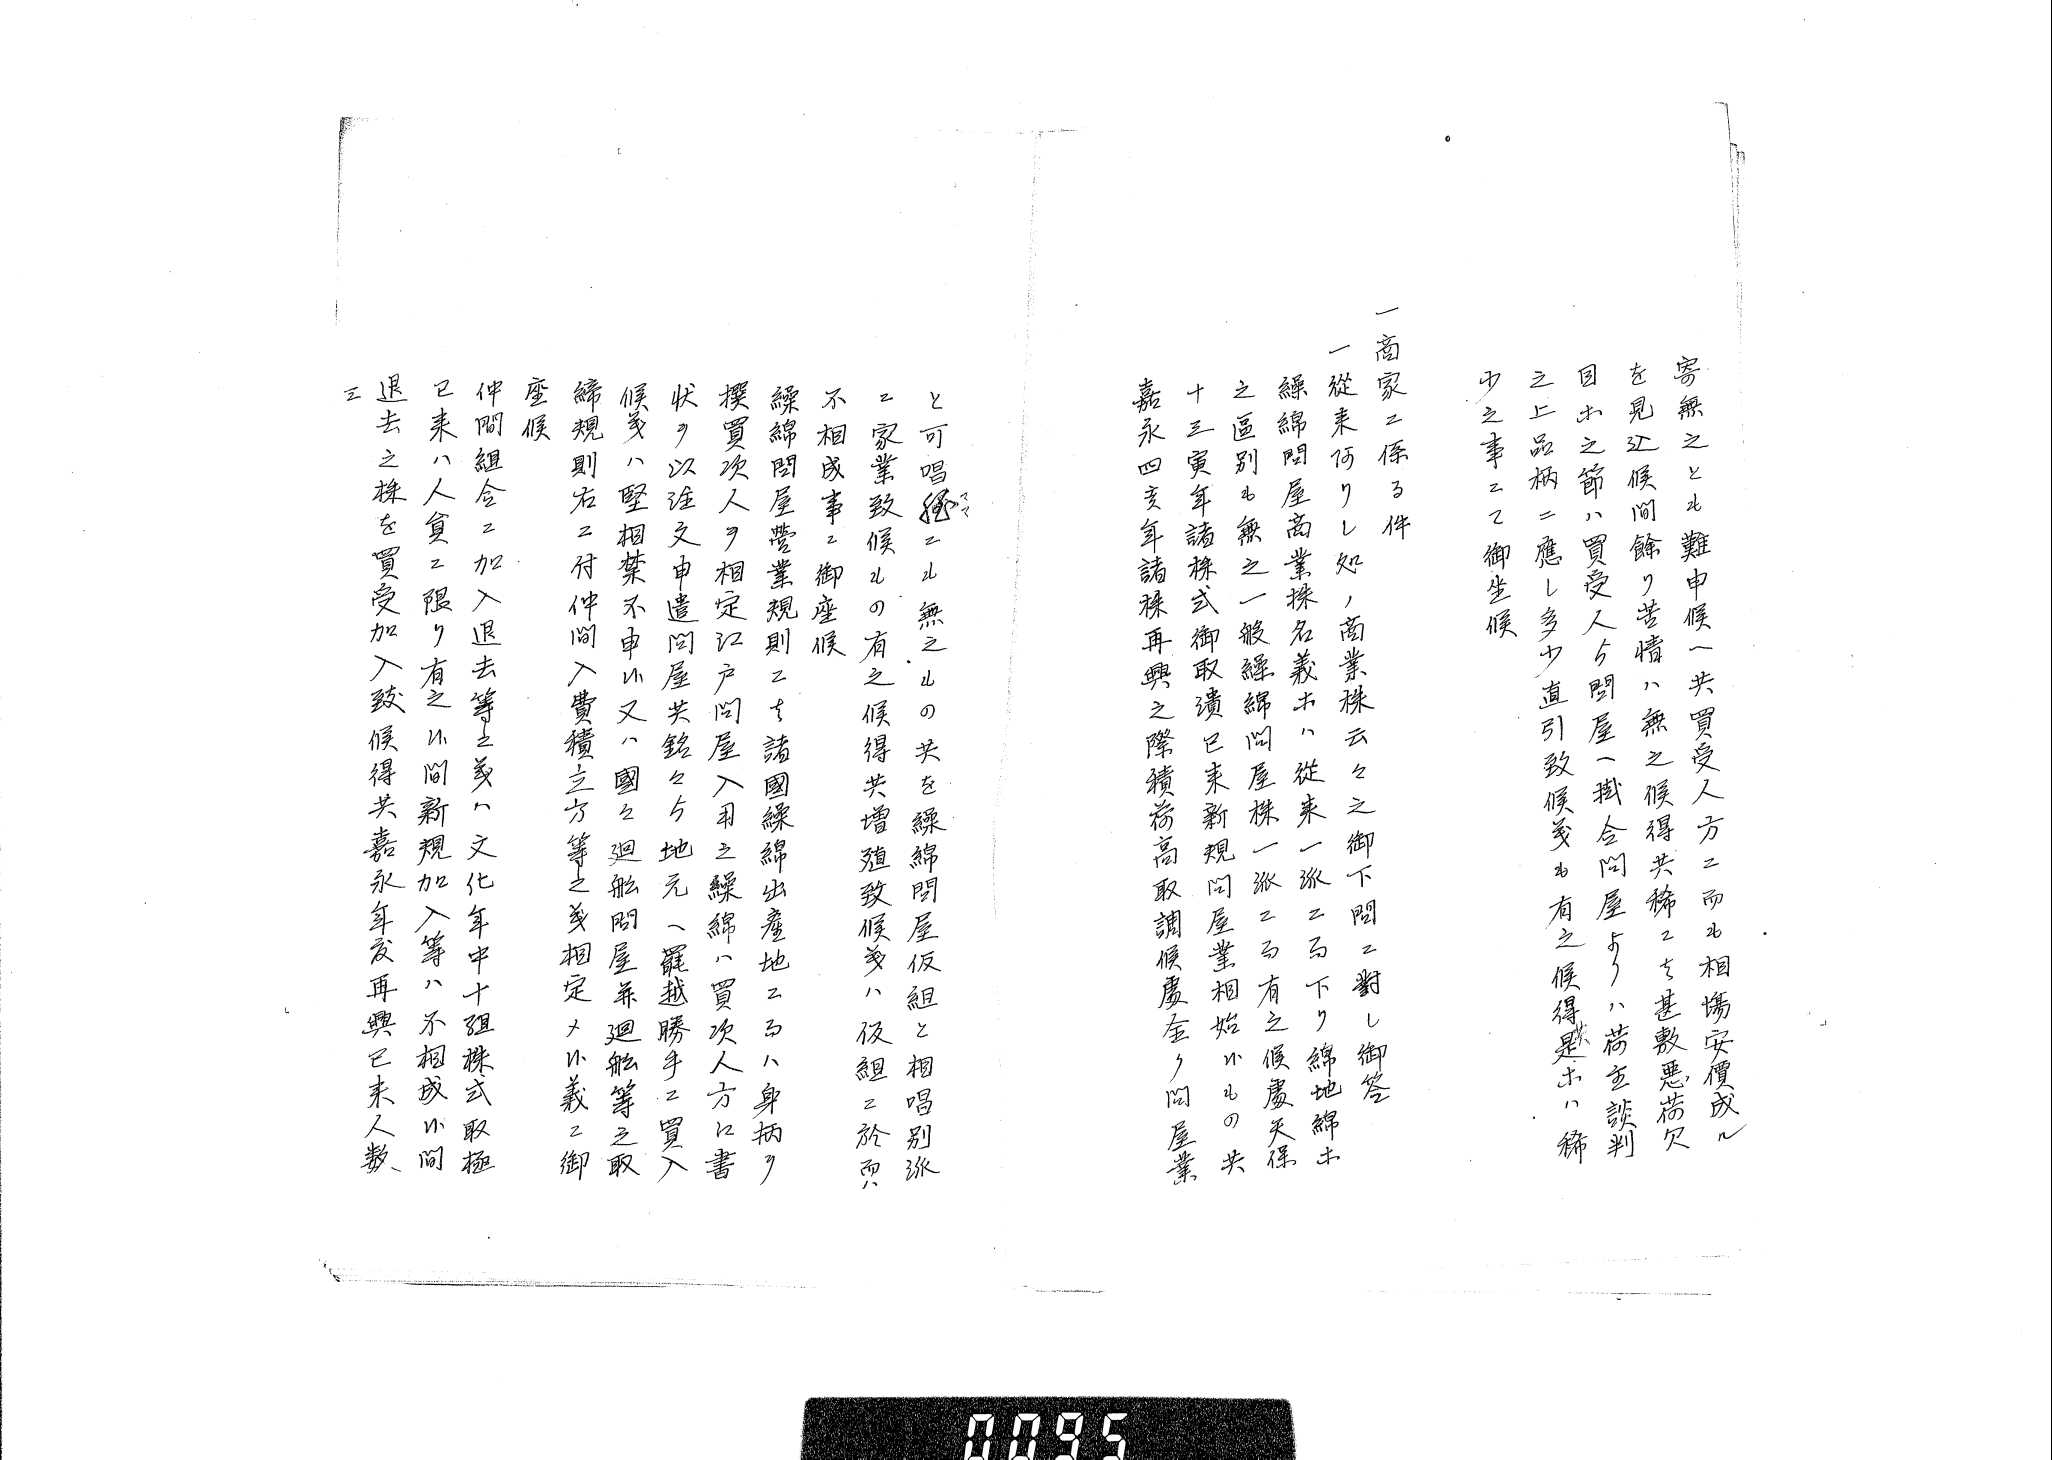 寄無之とも難申候へ共買受人方ニ而も相場安價成ル
を見込候間餘り苦情ハ無之候得共稀ニハ甚敷悪荷欠
目ホ之節ハ買受人ゟ問屋へ掛合問屋よりハ荷主談判
之上品柄ニ應し多少直引致候義も有之候得共是ホハ稀
少之事ニて御坐候
一商家ニ係る件
一從来何りし処ノ商業株云々之御下問ニ對し御答
繰綿問屋商業株名義ホハ從来一派ニ而下り綿地綿ホ
之區別も無之一般繰綿問屋株一派ニ而有之候處天保
十三寅年諸株式御取潰已来新規問屋業相始候もの共
嘉永四亥年諸株再興之際積荷高取調候處全ク問屋業
と可唱程ママニも無之もの共を繰綿問屋仮組と相唱別派
ニ家業致候もの有之候得共増殖致候義ハ仮組ニ於而ハ
不相成事ニ御座候
繰綿問屋營業規則ニ者諸國繰綿出産地ニ而ハ身柄ヲ
撰買次人ヲ相定江戸問屋入用之繰綿ハ買次人方江書
状ヲ以注文申遣問屋共銘々ゟ地元へ罷越勝手ニ買入
候義ハ堅相禁不申候又ハ國々廻舩問屋并廻舩等之取
締規則右ニ付仲間入費積立方等之義相定メ候義ニ御
座候
仲間組合ニ加入退去等之義ハ文化年中十組株式取極
已来ハ人員ニ限り有之候間新規加入等ハ不相成候間
退去之株を買受加入致候得共嘉永年度再興已来人数
ニ
0095